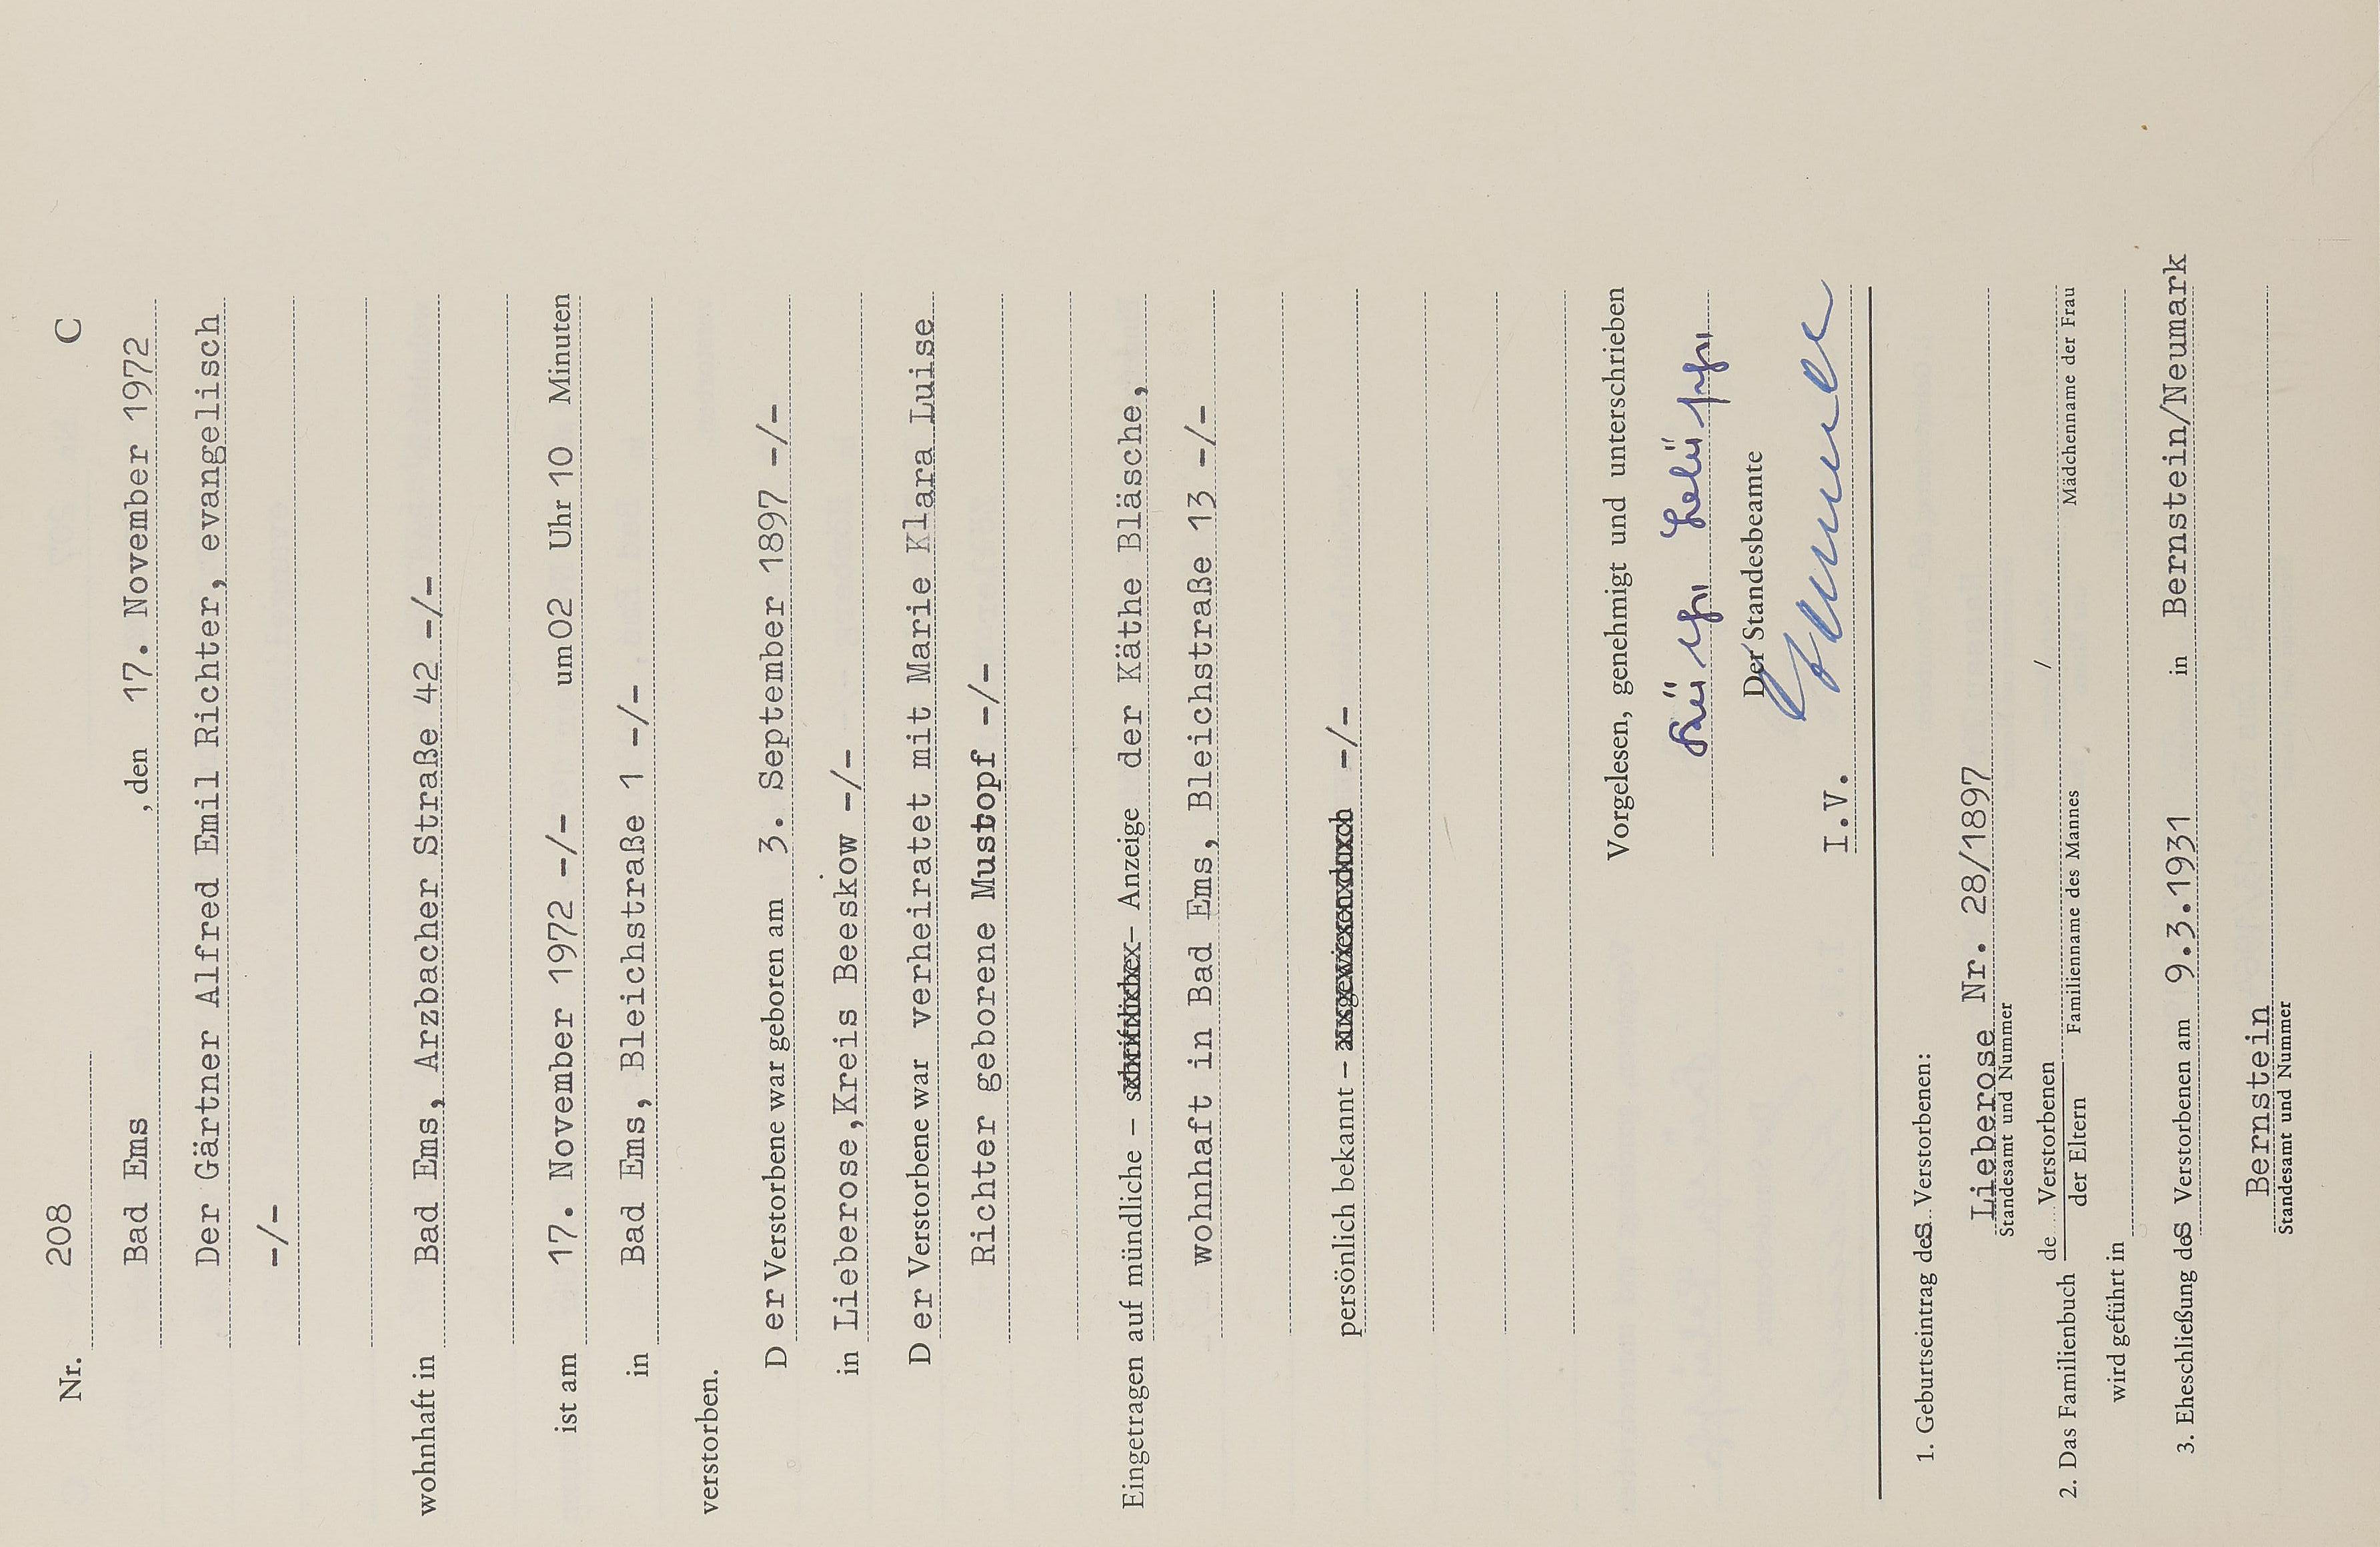 Nr. 208 C
Bad Ems , den 17. November 1972
Der Gärtner Alfred Emil Richter, evangelisch
-/-
wohnhaft in Bad Ems, Arzbacher Straße 42 -/-
ist am 17. November 1972 -/- um 02 Uhr 10 Minuten
in Bad Ems, Bleichstraße 1 -/-
verstorben.
Der Verstorbene war geboren am 3. September 1897 -/-
in Lieberose,Kreis Beeskow -/-
Der Verstorbene war verheiratet mit Marie Klara Luise
Richter geborene Mustopf -/-
Eingetragen auf mündliche – schriftliche – Anzeige der Käthe Bläsche,
wohnhaft in Bad Ems, Bleichstraße 13 -/-
persönlich bekannt – ausgewiesen durch -/-
Vorgelesen, genehmigt und unterschrieben
Der Standesbeamte
I.V.
1. Geburtseintrag des Verstorbenen:
Lieberose Nr. 28/1897
Standesamt und Nummer
2. Das Familienbuch de Verstorbenen /
der Eltern Familienname des Mannes Mädchenname der Frau
wird geführt in
3. Eheschließung des Verstorbenen am 9.3.1931 in Bernstein/Neumark
Bernstein
Standesamt und Nummer